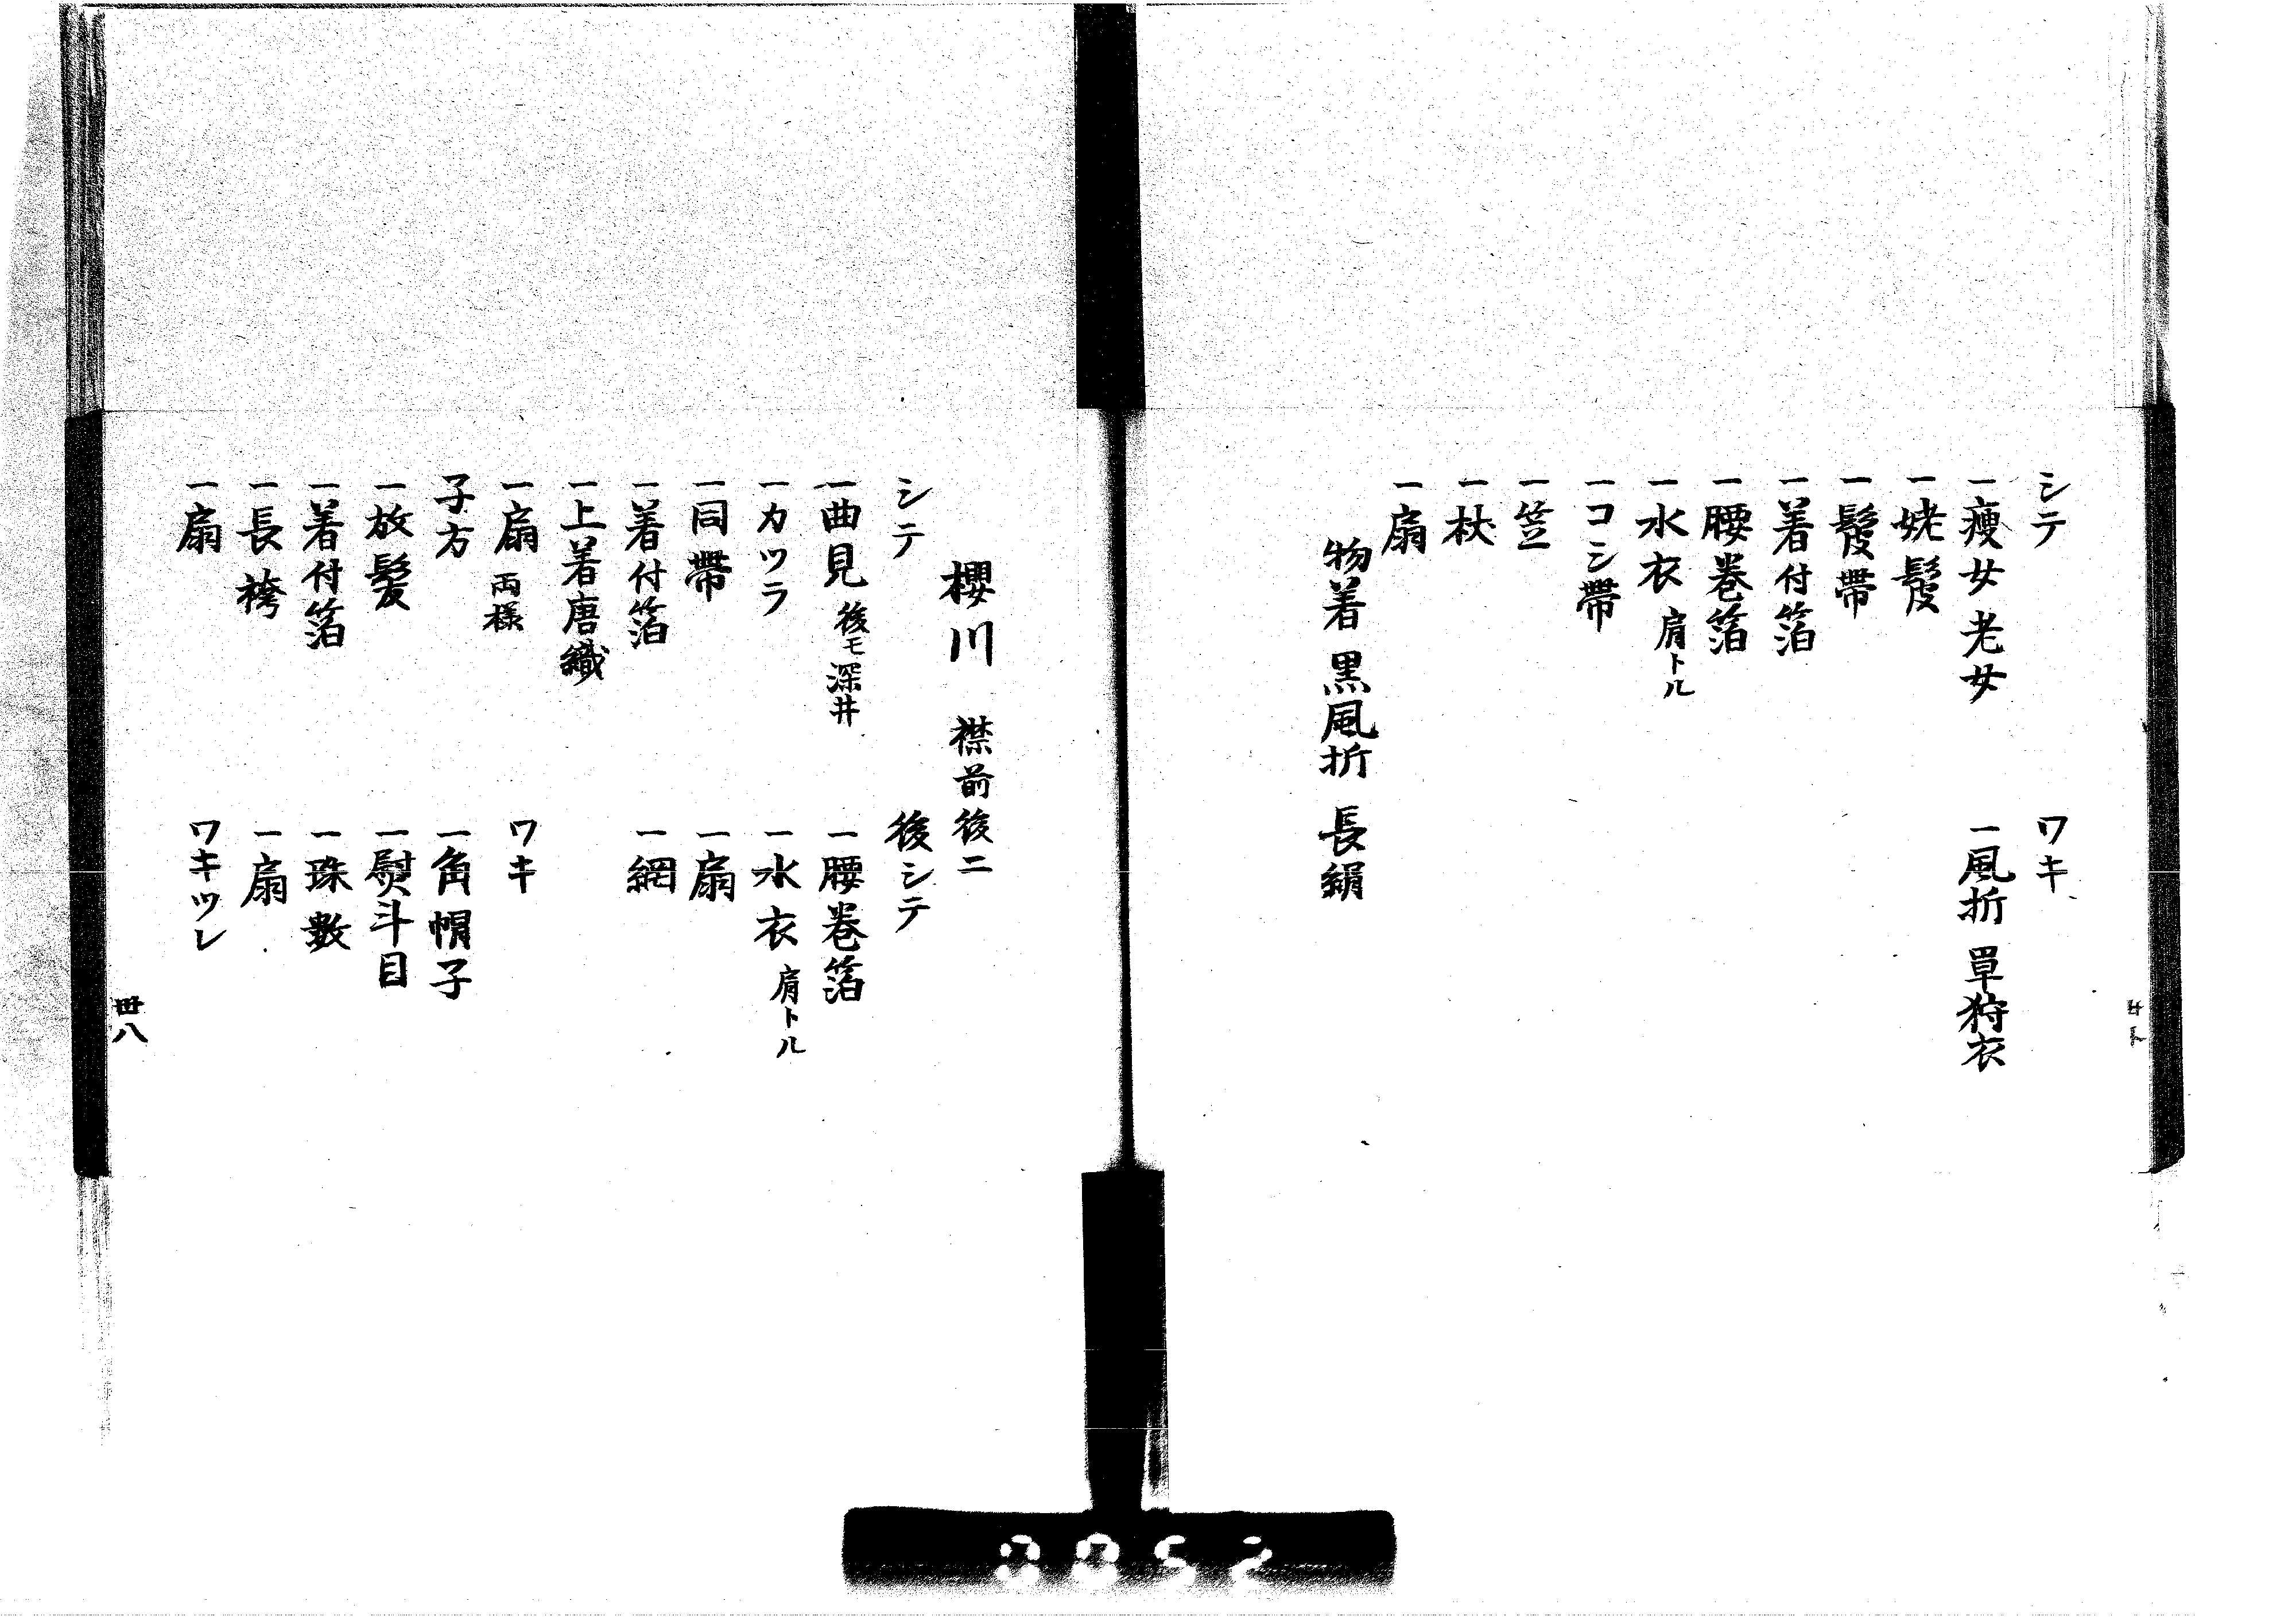 シテ
一痩女老女
一姥鬘
一鬘帶
一着付箔
一腰巻箔
一水衣 肩トル
一コシ帶
一笠
一杖
一扇
物着 黒風折 長絹
ワキ
一風折 單狩衣
櫻川 襟前後二
シテ
一曲見 後モ深井
一カツラ
一同帶
一着付箔
一上着唐織
一扇 両様
子方
一放髪
一着付箔
一長袴
一扇
後シテ
一腰巻箔
一水衣 肩トル
一扇
一網
ワキ
一角帽子
一熨斗目
一珠数
一扇
ワキツレ
卌八